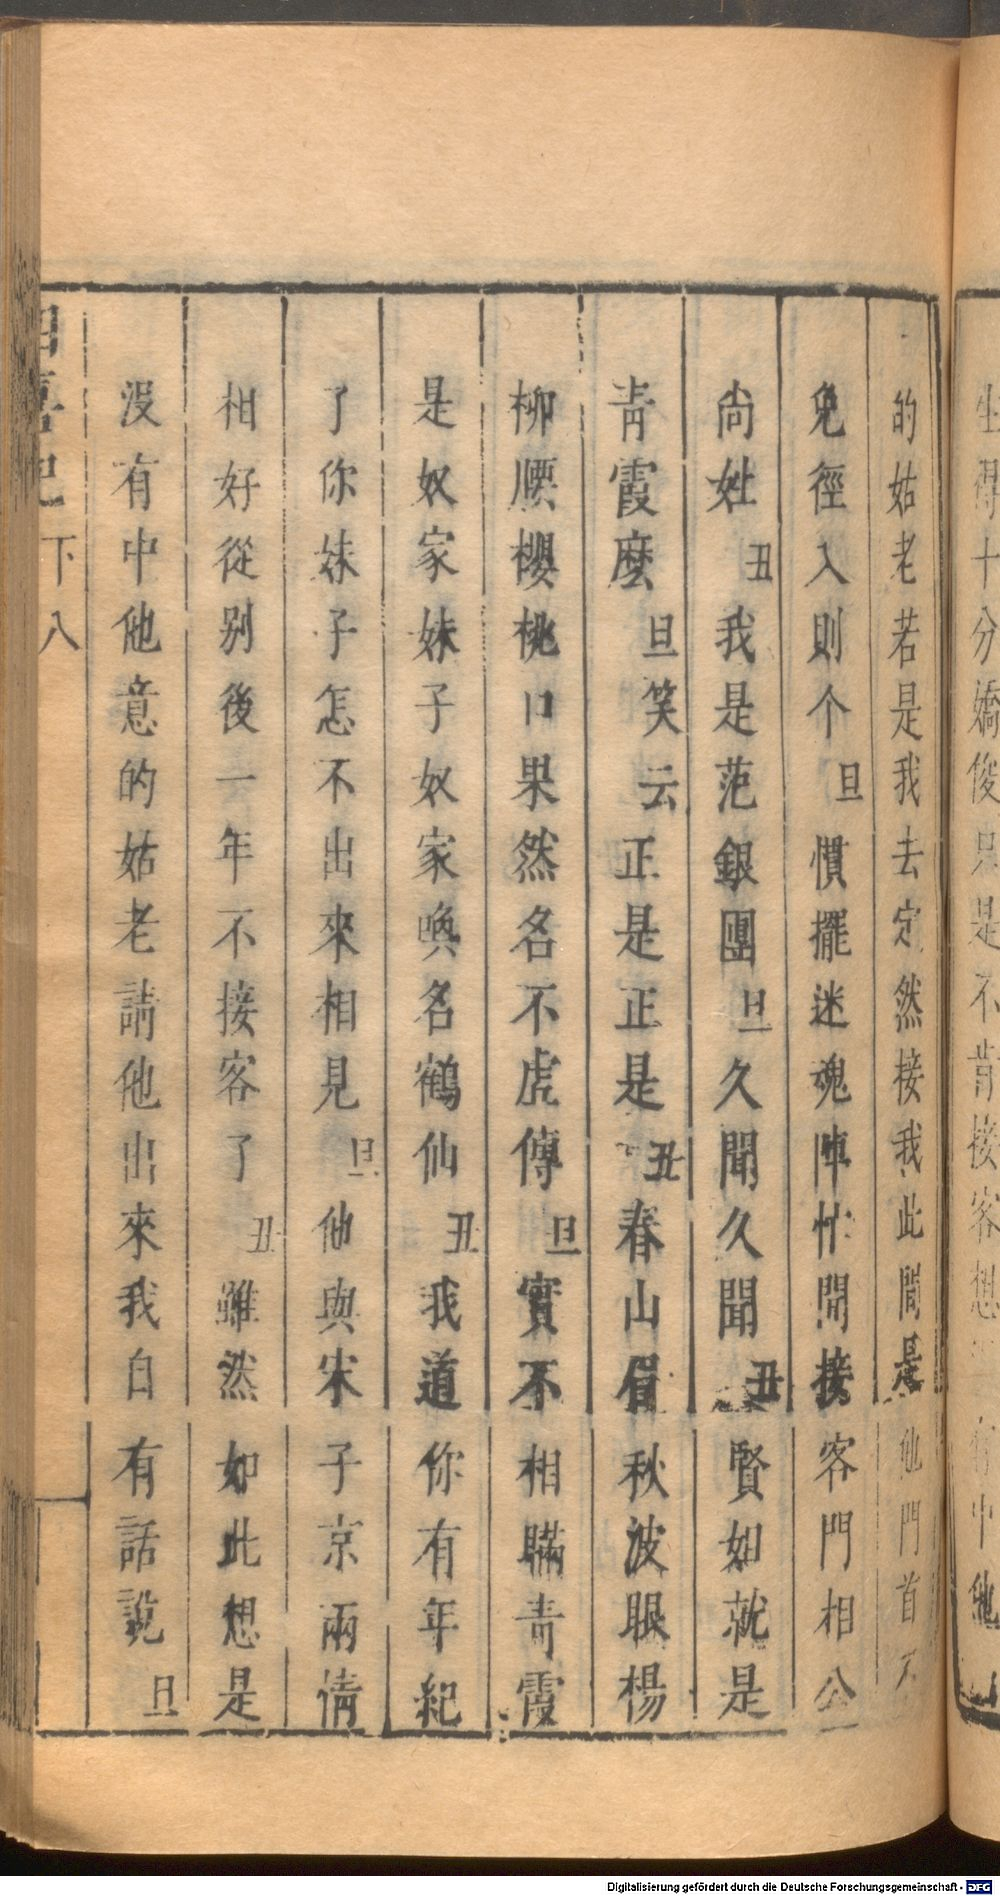 生得十分嬌俊只是不肯接客想
的姑老若是我去定然接我此間是他門首不
免徑入則个旦慣擺迷魂陣忙開接客門相公
尚姓丑我是范銀團旦久聞久聞丑賢如就是
青霞麼旦笑云正是正是丑春山眉秋波眼楊
柳腰櫻桃口果然名不虛傳旦實不相瞞青霞
是奴家妹子奴家喚名鶴仙丑我道你有年紀
了你妹子怎不出來相見旦他與宋子京兩情
相好從别後一年不接客了丑雖然如此想是
沒有中他意的姑老請他出來我自有話説旦
四喜記 下 八
Digitalisierung gefördert durch die Deutsche Forschungsgemeinschaft - DFG